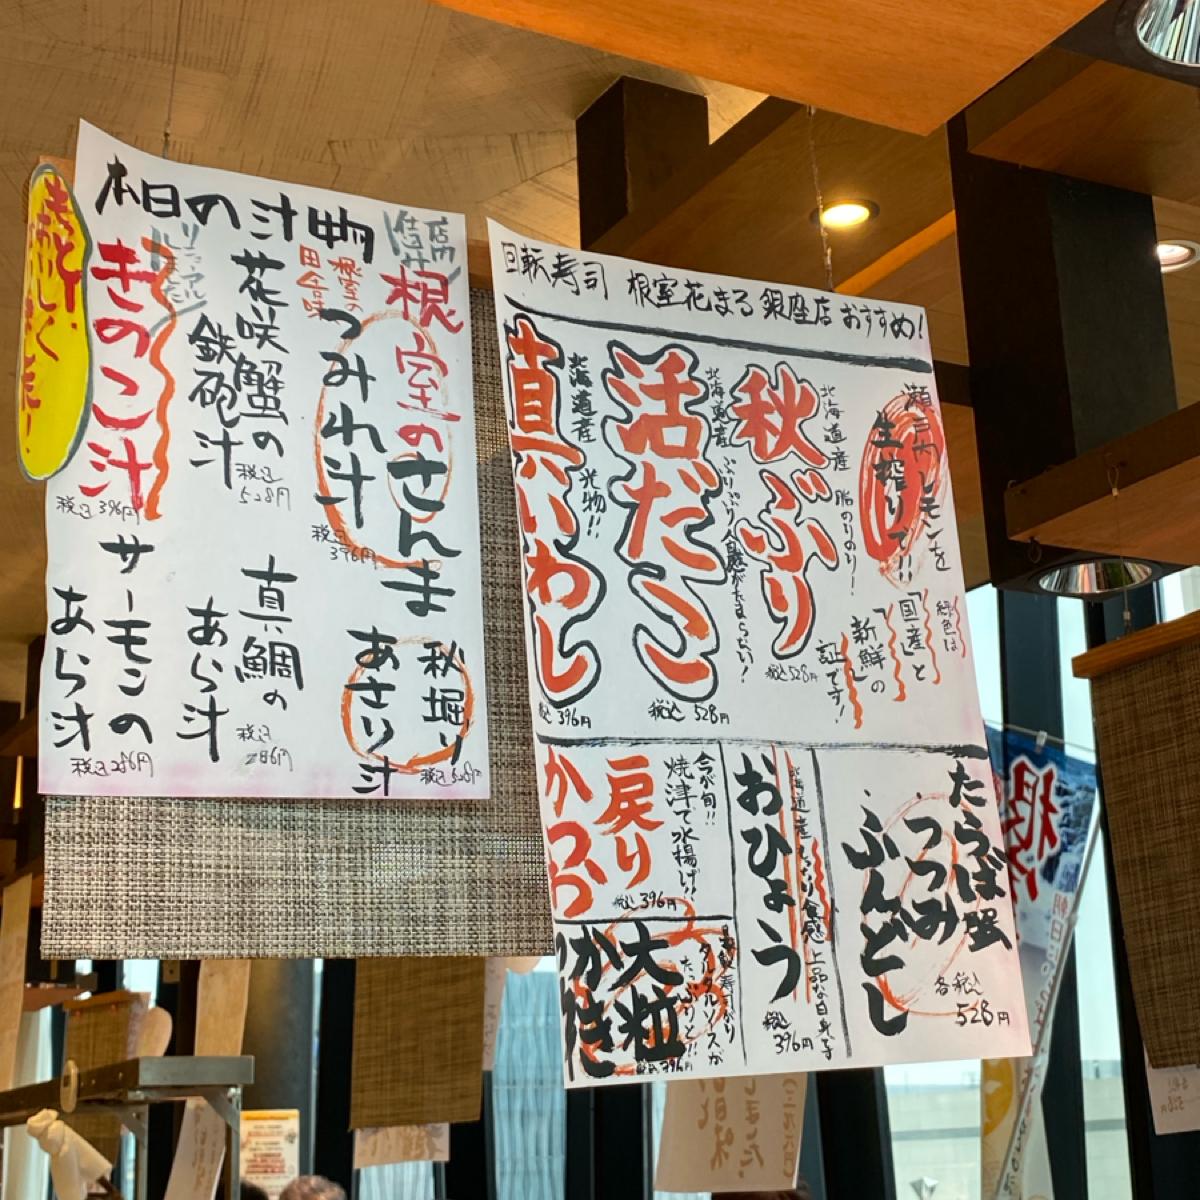 本日の汁物
根室のさんま
つみれ汁
根室の
田舎味
税込
396円
花咲蟹の
鉄砲汁
税込
528円
リニューアル
しました
きのこ汁
税込 396円
秋堀り
あさり汁
税込 528円
真鯛の
あら汁
税込
286円
サーモンの
あら汁
税込 286円
回転寿司 根室花まる 銀座店 おすすめ!
瀬戸内レモンを
生搾りで!!
緑色は
「国産」と
「新鮮」の
証です!
北海道産 脂のりのり!
秋ぶり
税込 528円
北海道産 ぷりぷり食感がたまらない!
活だこ
税込 528円
北海道産 光物!!
真いわし
税込 396円
たらば蟹
つつみ
ふんどし
各税込
528円
北海道産
食感 上品な白身
おひょう
税込
396円
今が旬!!
焼津で水揚げ!!
戻り
かつお
税込 396円
タルタルソースが
たっぷりと!!
大粒
かき
税込 396円